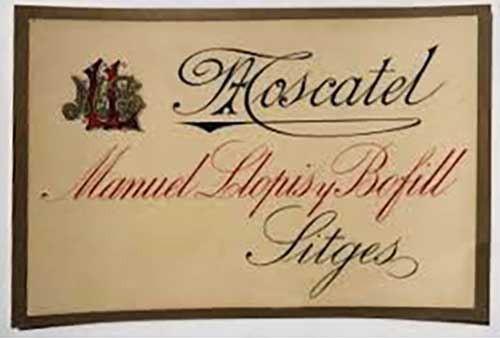 Moscatel
Manuel Llopis y Bofill
Sitges